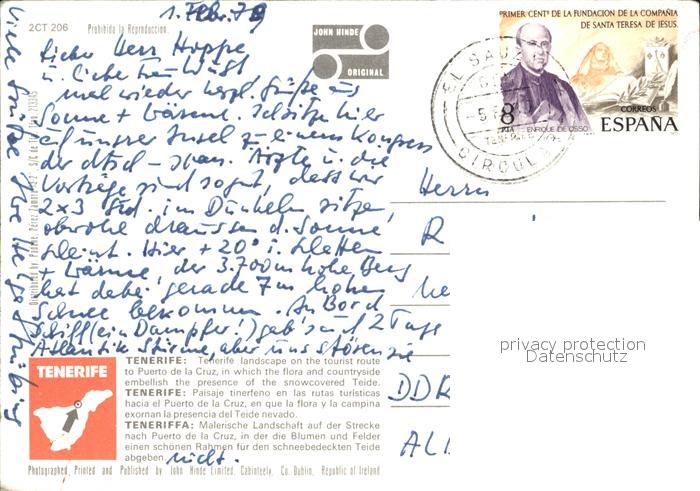 1. Febr. 79
2CT 206 Prohibida la Reproducción.
JOHN HINDE
ORIGINAL
PRIMER CENTº DE LA FUNDACION DE LA COMPAÑIA
DE SANTA TERESA DE JESUS.
8
PTA
ENRIQUE DE OSSO
CORREOS
ESPAÑA
Lieber Herr Hoppe
u. liebe Frau
mal wieder herzl. Grüße aus
Sonne + Wärme. Ich sitze hier
auf unsrer Insel zu einem Kongress
der dtsch-span. Ärzte u. die
Vorträge sind so gut, dass wir
2x3 Std. im Dunkeln sitzen,
obwohl draussen d. Sonne
scheint. Hier +20° i. Schatten
+ Wärme, der 3.700 m hohe Berg
hat dabei gerade 7 m hohen
Schnee bekommen. An Bord
Schiff (ein Dampfer!) gab's auf 2 Tage
Atlantik Stürme, aber uns stören sie
nicht.
Viele Grüße Ihre
Herrn
R
DDR
privacy protection
Datenschutz
TENERIFE
TENERIFE: Tenerife landscape on the tourist route
to Puerto de la Cruz, in which the flora and countryside
embellish the presence of the snowcovered Teide.
TENERIFE: Paisaje tinerfeno en las rutas turísticas
hacia el Puerto de la Cruz, en que la flora y la campina
exornan la presencia del Teide nevado.
TENERIFFA: Malerische Landschaft auf der Strecke
nach Puerto de la Cruz, in der die Blumen und Felder
einen schönen Rahmen für den schneebedeckten Teide
abgeben.
Photographed, Printed and Published by John Hinde Limited, Cabinteely, Co. Dublin, Republic of Ireland